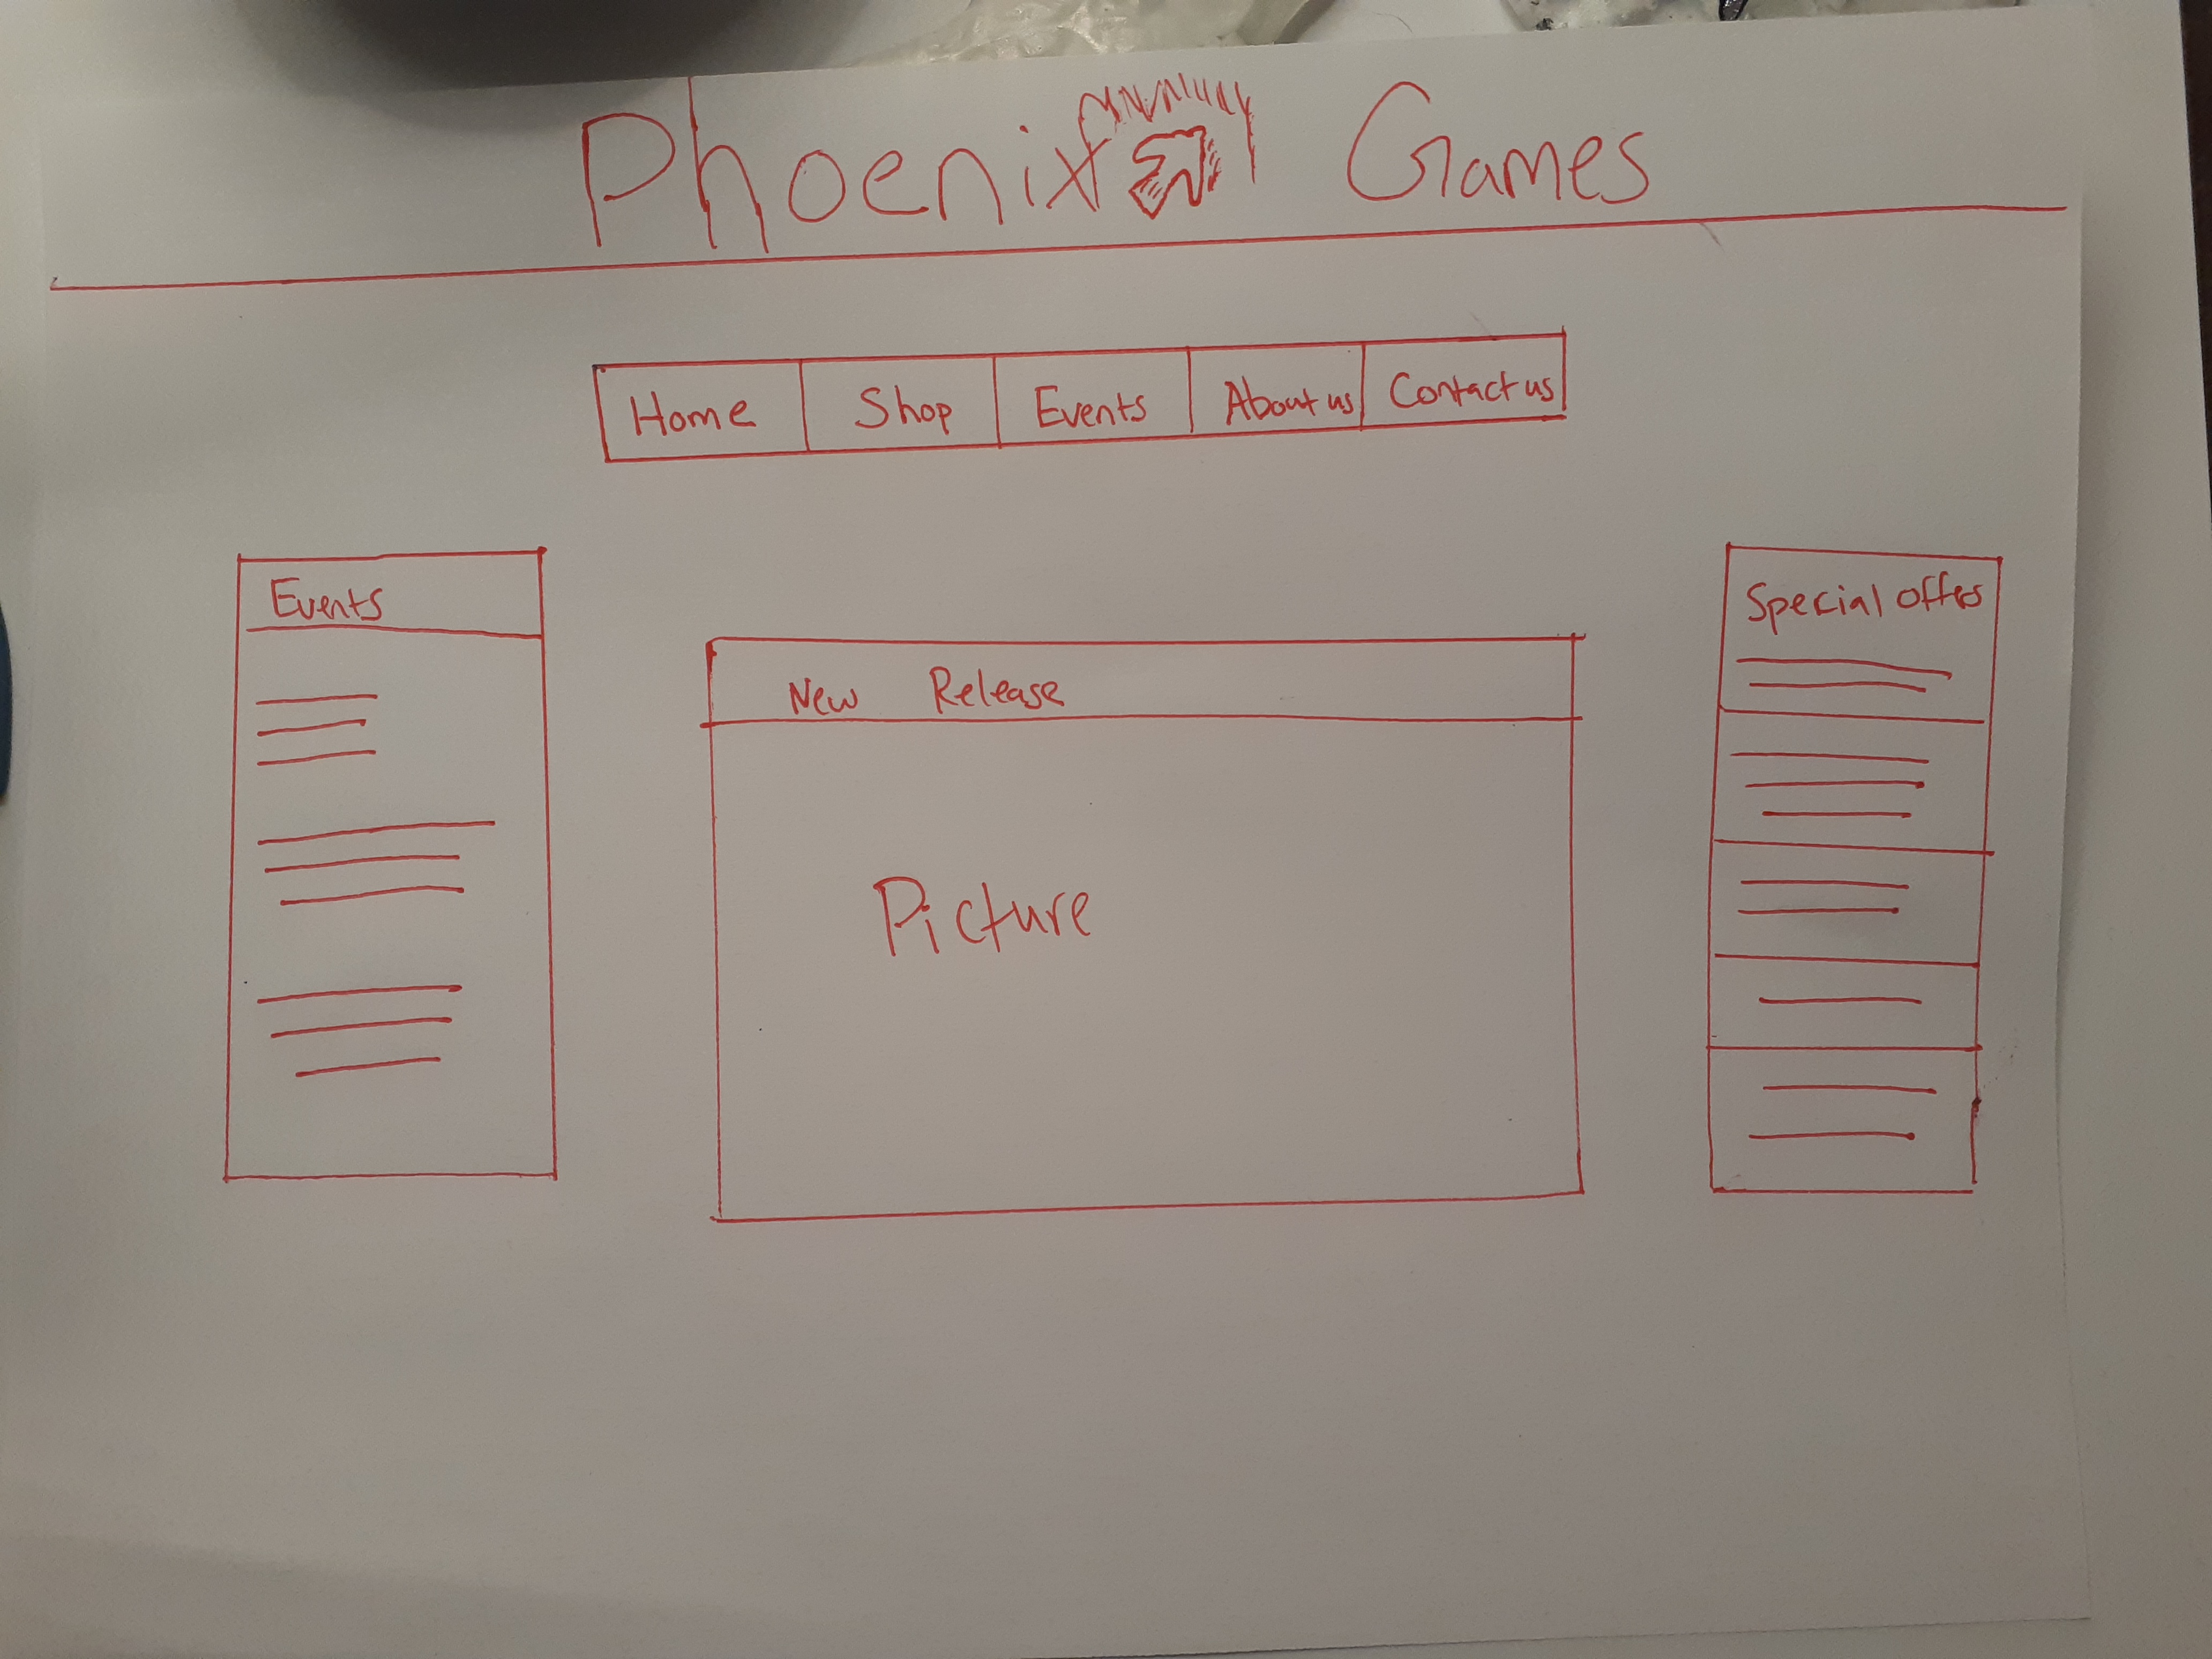 Phoenix Games
Home Shop Events About us Contact us
Events
New Release
Picture
Special offers